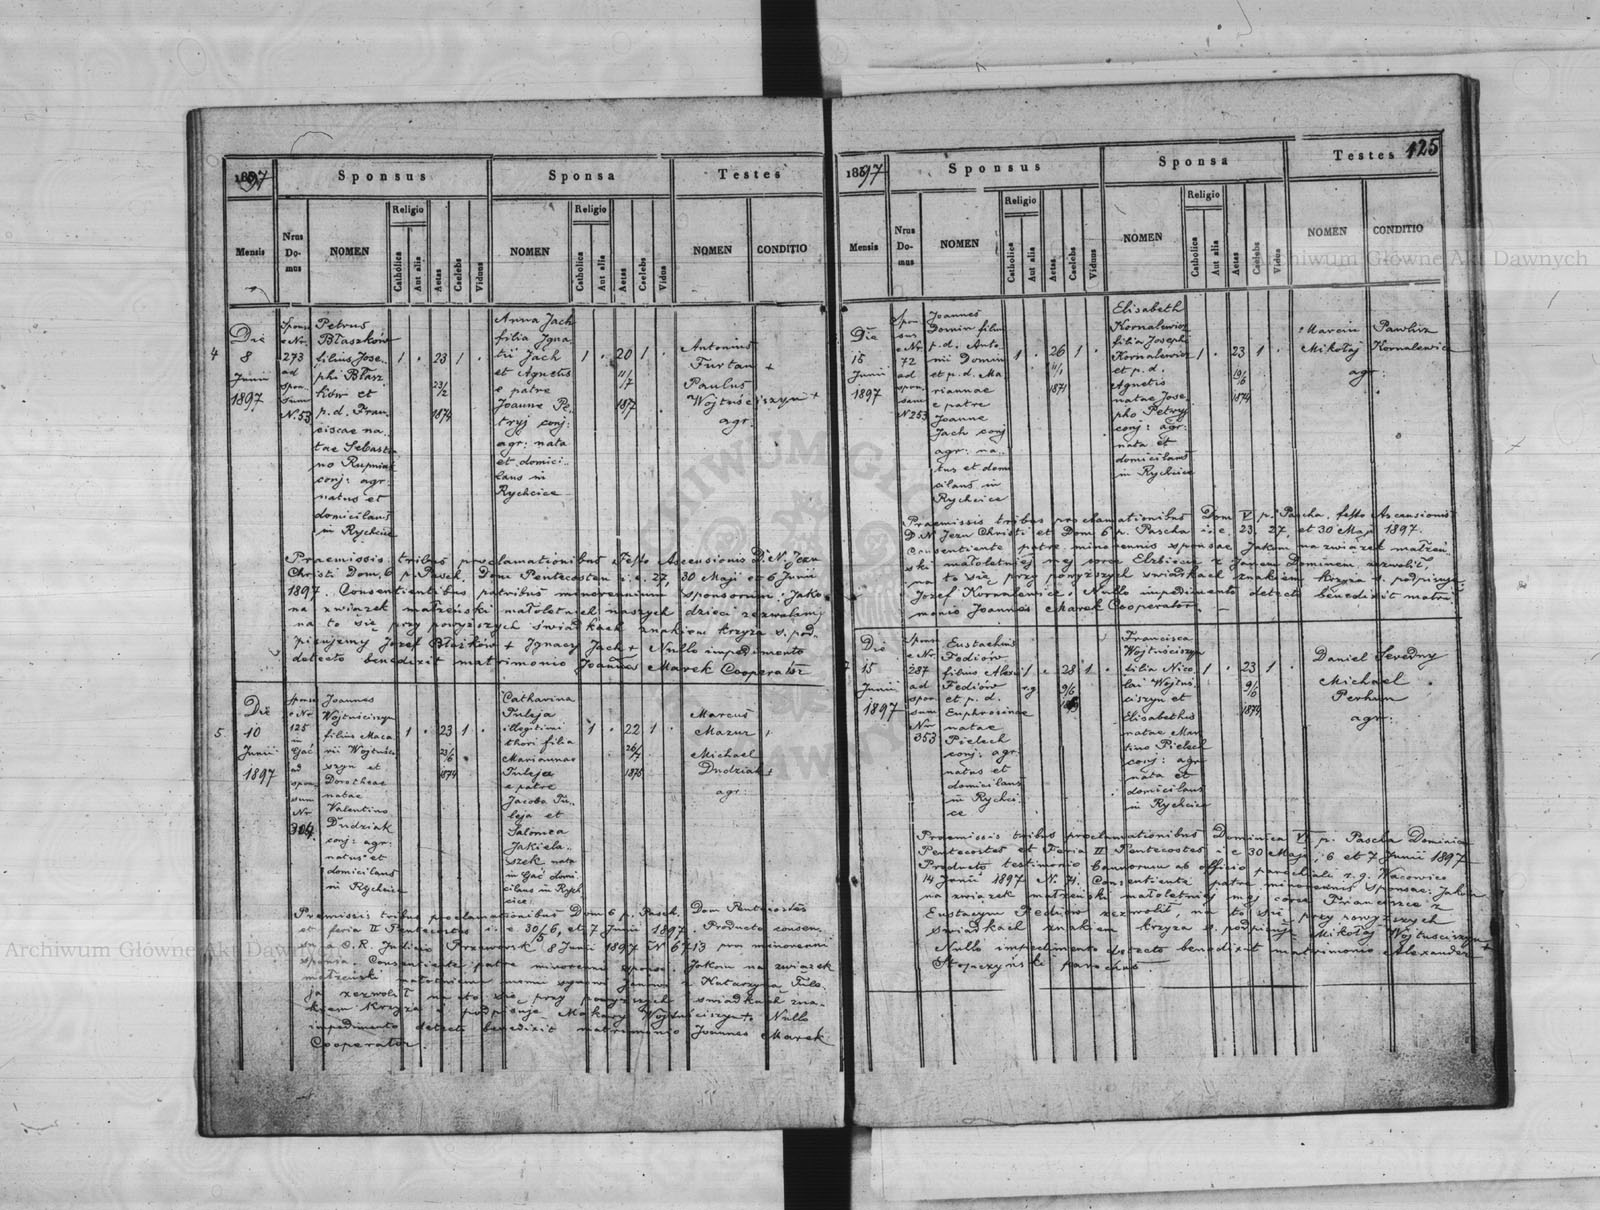 125
1897
Sponsus
Sponsa
Testes
Mensis
Nrus Domus
NOMEN
Religio
Catholica
Aut alia
Aetas
Caelebs
Viduus
NOMEN
Religio
Catholica
Aut alia
Aetas
Caelebs
Vidua
NOMEN
CONDITIO
4
Die
8
Junii
1897
Sponsi
e Nr
273
ad
spon
sam
N. 53
Petrus
Błaszków
filius Jose-
phi Błasz
ków et
p. d. Fran
ciscae na-
tae Sebasti
no
conj: agr.
natus et
domicilans
in Rychcice
1 . 23 1 .
23/2
1874
Anna Jach
filia Igna-
tii Jach
et Agnetis
e patre
Joanne Pe-
tryj conj:
agr: nata
et domici-
lans in
Rychcice
1 . 20 1 .
11/7
1877
Antonius
Furtan +
Paulus
Wojtuściszyn +
agr.
Praemissis tribus proclamationibus Festo Ascensionis D. N. Jezu
Christi Dom. 6 p. Pasch. Dom Pentecosten i. e. 27, 30 Maji et 6 Junii
1897. Consentientibus patribus minorennium sponsorum: Jako
na związek małżeński małoletnich naszych dzieci zezwalamy
na to się przy powyższych świadkach znakiem krzyża ś. pod-
pisujemy Józef Błaszków + Ignacy Jach + Nullo impedimento
detecto benedixit matrimonio Joannes Marek Cooperator
5
Die
10
Junii
1897
Sponsi
e Nr
125
in
Gać
ad
spon
sam
Nr
304
Joannes
Wojtuściszyn
filius Maca
rii Wojtuści
szyn et
Dorotheae
natae
Valentino
Dudziak
conj: agr:
natus et
domicilans
in Rychcice
1 . 23 1 .
23/6
1874
Catharina
Tuleja
illegitimi
thori filia
Mariannae
Tuleja
e patre
Jacobo Tu-
leja et
Salomea
Jakiela-
szek nata
in Gać domi
cilans in Rych
cice
1 . 22 1 .
26/7
1875
Marcus
Mazur
Michael
Dudziak +
agr:
Praemissis tribus proclamationibus Dom 6 p. Pasch. Dom Pentecostes
et feria II Pentecostes i. e. 30/5 6, et 7 Junii 1897. Producto consen-
C. R. Judicio Przeworsk 8 Junii 1897 N 6713 pro minorenni
sponsa. Consentiente patre minorenni sponsi: Jakom na związek
małżeński małoletniemu memu synowi Janowi z Katarzyną Tule-
ja zezwolił na to się przy powyższych świadkach zna-
kiem krzyża ś podpisuje Makary Wojtuściszyn + Nullo
impedimento detecto benedixit matrimonio Joannes Marek
Cooperator.
1897
Sponsus
Sponsa
Testes
Mensis
Nrus Domus
NOMEN
Religio
Catholica
Aut alia
Aetas
Caelebs
Viduus
NOMEN
Religio
Catholica
Aut alia
Aetas
Caelebs
Vidua
NOMEN
CONDITIO
Die
15
Junii
1897
Spon-
sus
e Nr
72
ad
spon
sam
N 253
Joannes
Domin filiu
p. d. Anto-
nii Domin
et p. d. Ma
riannae
e patre
Joanne
Jach conj
agr: na-
tus et domi
cilans in
Rychcice
1 . 26 1 .
11/1
1871
Elisabeth
Kornalewicz
filia Josephi
Kornalewicz
et p. d.
Agnetis
natae Jose-
pho Petryj
conj: agr:
nata et
domicilans
in Rychcice
1 . 23 1 .
19/6
1874
Marcin Pawliw
Mikołaj Kornalewicz
agr:
Praemissis tribus proclamationibus Dom V p. Pascha, festo Ascensionis
D. N Jezu Christi et Dom 6 p. Pascha i. e. 23, 27, et 30 Maji 1897.
Consentiente patre minorennis sponsae: Jakom na związek małżeń-
ski małoletniej mej córce Elżbiecie z Janem Dominem, zezwolił,
na to się przy powyższych świadkach znakiem krzyża ś. podpisuję
Jozef Kornalewicz. Nullo impedimento detecto benedixit matri-
monio Joannes Marek Cooperator.
Die
15
Junii
1897
Sponsi
e Nr
287
ad
spon
sam
Nr
353
Eustachius
Fediów
filius Alexii
Fediów
et p. d.
Euphrosinae
natae
Pielech
conj: agr:
natus et
domicilans
in Rychci
ce
1 . 28 1 .
r.g
9/6
Francisca
Wojtuściszyn
filia Nico
lai Wojtu-
ściszyn et
Elisabethae
natae Mar-
tino Pielech
conj: agr
nata et
domicilans
in Rychcice
1 . 23 1 .
9/6
1874
Daniel
Michael
Perhun
agr:
Praemissis tribus proclamationibus Dominica VI p. Pascha Dominica
Pentecostes et Feria II Pentecostes i e 30 Maji, 6 et 7 Junii 1897
Producto testimonio bannorum ab officio parochiali r. g. Wacowice
14 Junii 1897 N. 71. Consentiente patre minorennis sponsae: Jakom
na związek małżeński małoletniej mej córce Franciszce z
Eustachym Fediów zezwolił, na to się przy powyższych
świadkach znakiem krzyża ś. podpisuję Mikołaj Wojtuściszyn +
Nullo impedimento detecto benedixit matrimonio Alexander
Stojaczyński parochus.
Archiwum Główne Akt Dawnych
Archiwum Główne Akt Dawnych